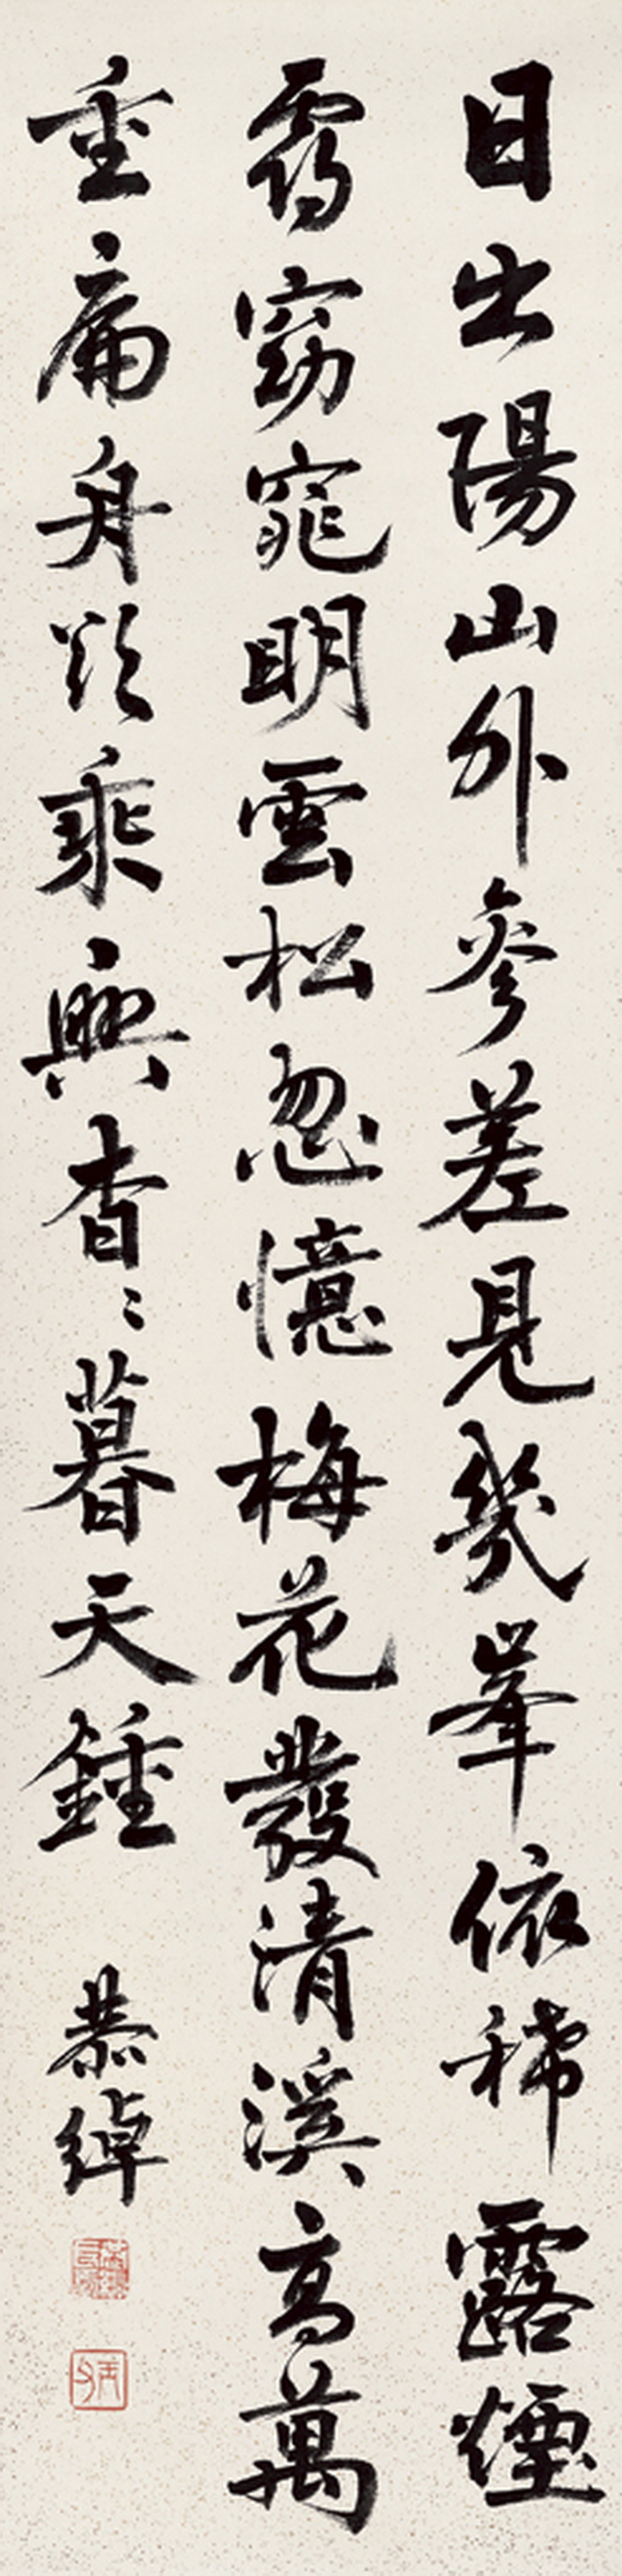 日出陽山外參差見幾峯依稀露煙
靄窈窕明雲松忽憶梅花發清溪高萬
重扁舟欲乘興杳〻暮天鍾
恭綽